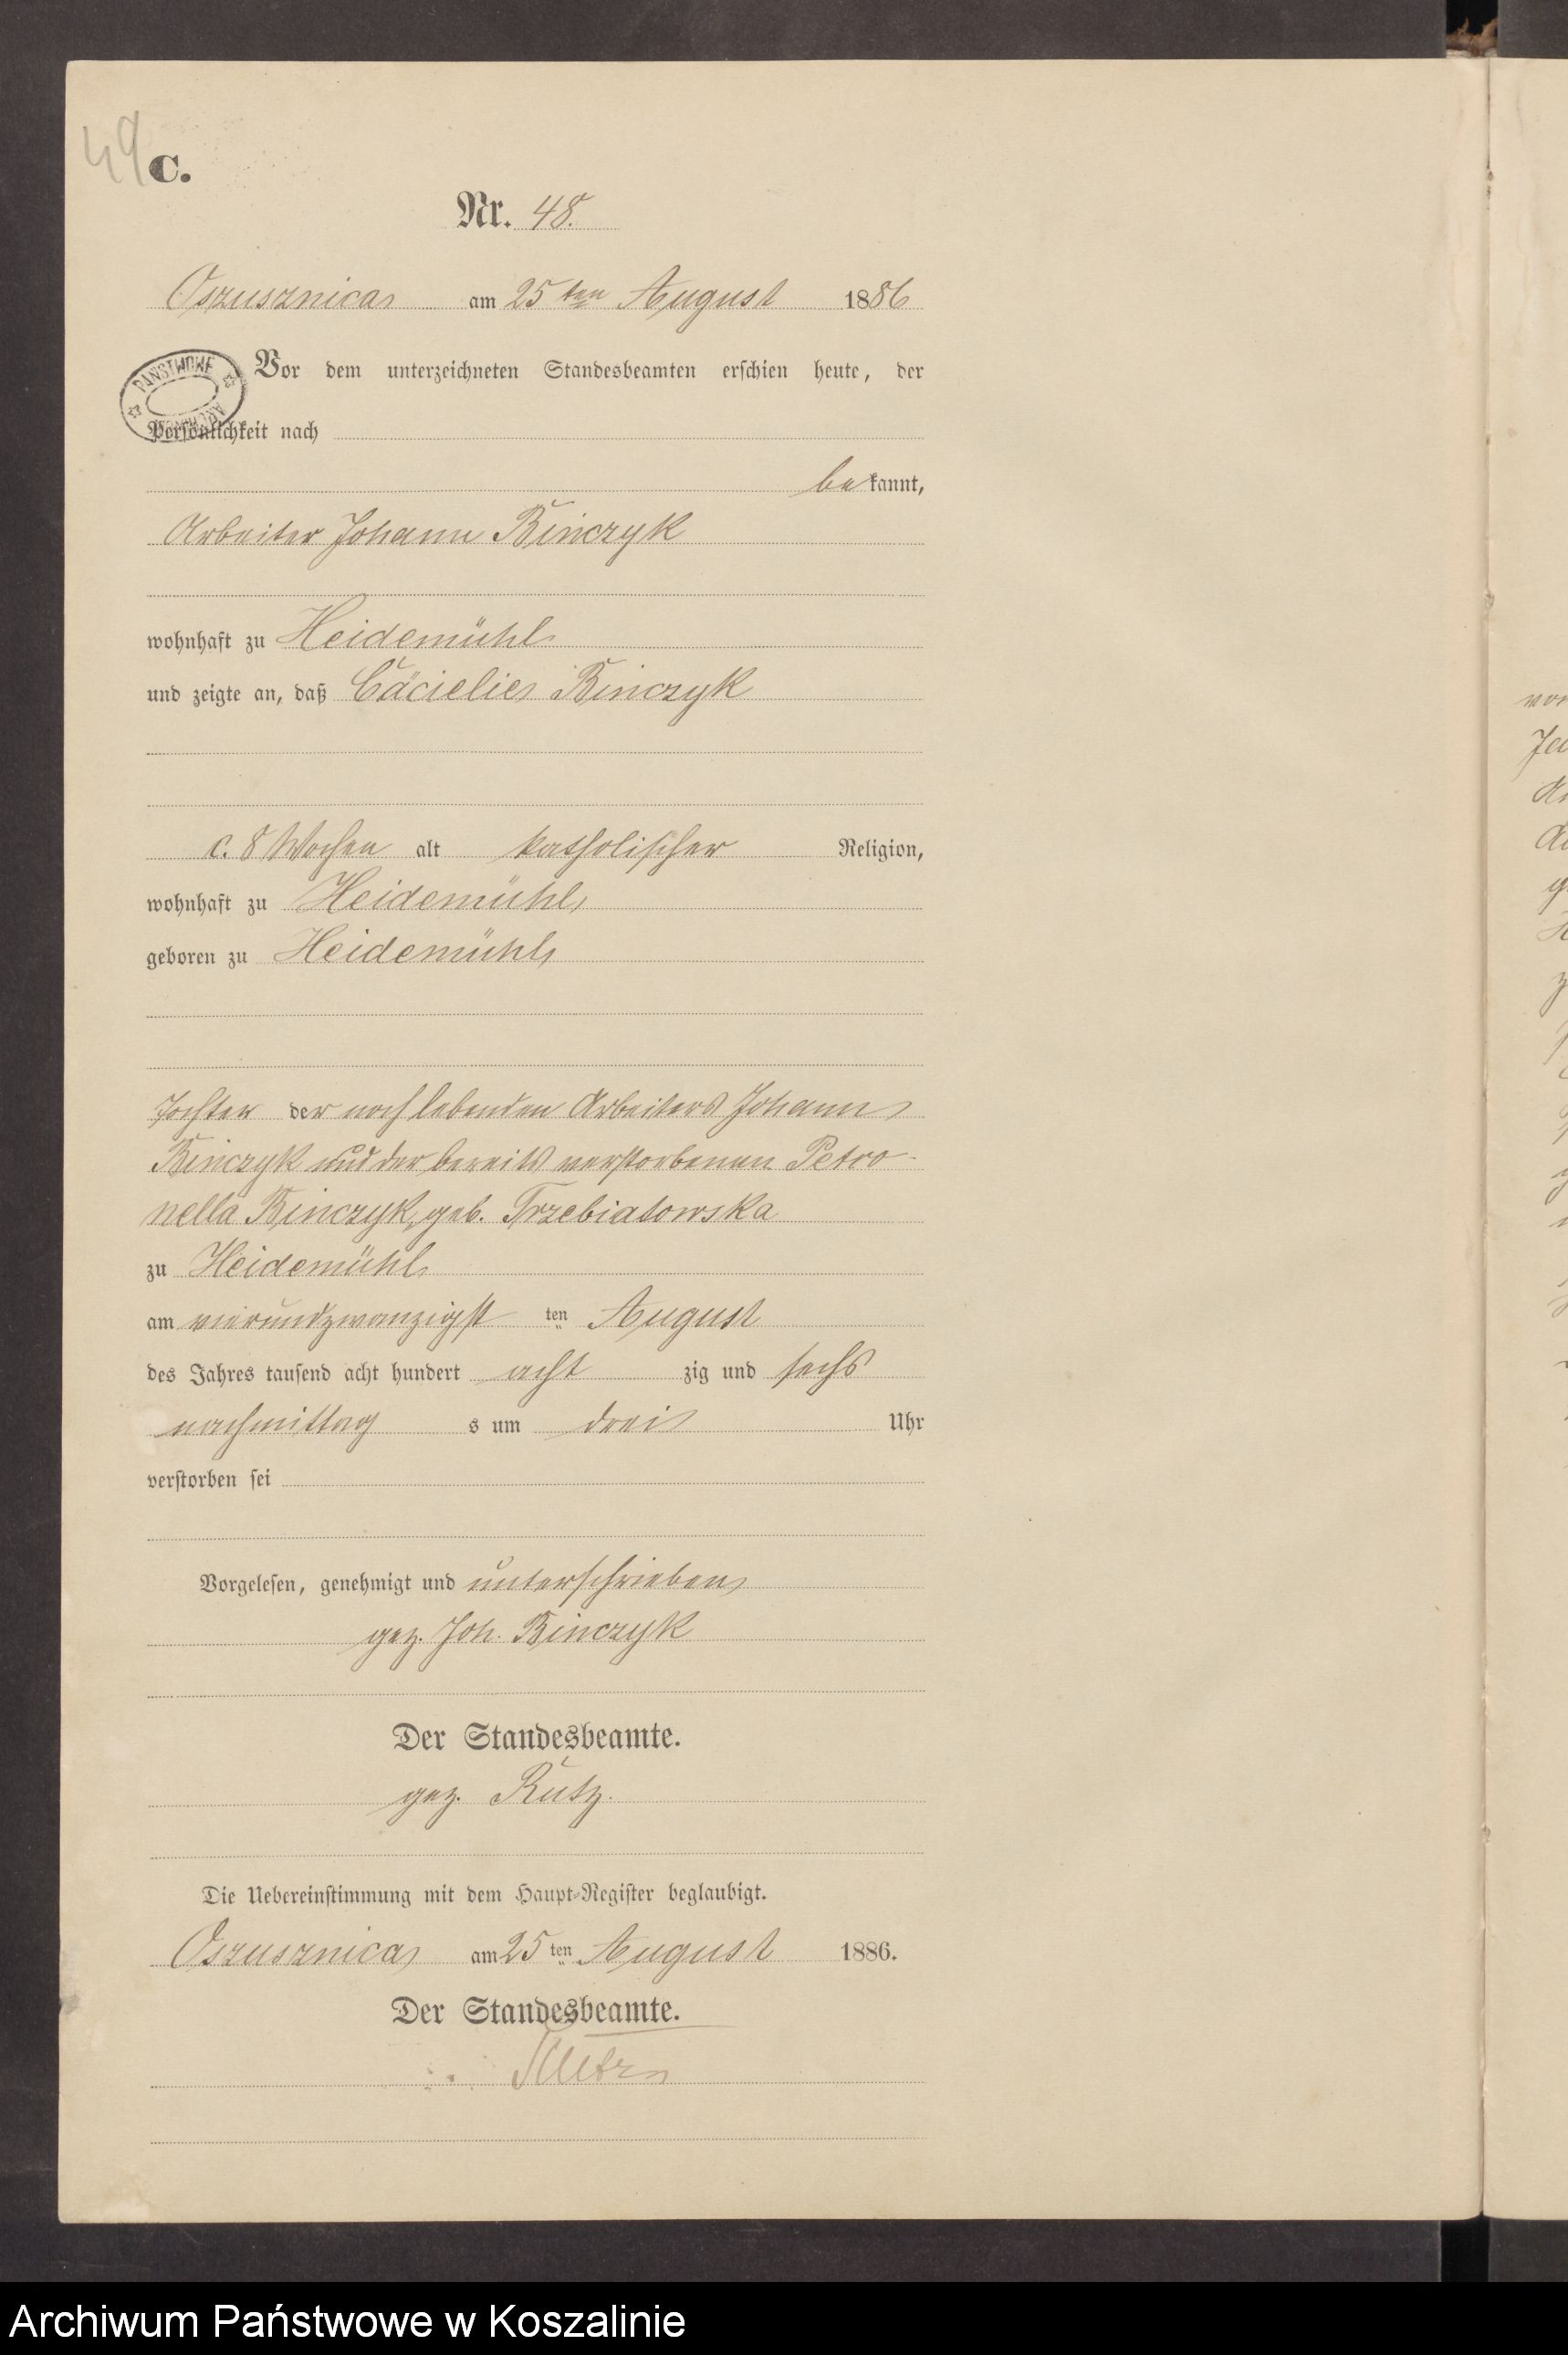 49
C.
Nr. 48.
Oszusznica am 25ten August 1886
Vor dem unterzeichneten Standesbeamten erschien heute, der
PAŃSTWOWE
Persönlichkeit nach
bekannt,
Arbeiter Johann Binczyk
wohnhaft zu Heidemühl
und zeigte an, daß Cäcielie Binczyk
c. 8 Wochen alt katholischer Religion,
wohnhaft zu Heidemühl
geboren zu Heidemühl
Tochter der noch lebenden Arbeiters Johann
Binczyk und der bereits verstorbenen Petro-
nella Binczyk, geb. Trzebiatowska
zu Heidemühl
am vierundzwanzigst ten August
des Jahres tausend acht hundert acht zig und sechs
nachmittag s um drei Uhr
verstorben sei
Vorgelesen, genehmigt und unterschrieben
gez. Joh. Binczyk
Der Standesbeamte.
gez. Rutz.
Die Uebereinstimmung mit dem Haupt-Register beglaubigt.
Oszusznica am 25ten August 1886.
Der Standesbeamte.
Rutz
Archiwum Państwowe w Koszalinie